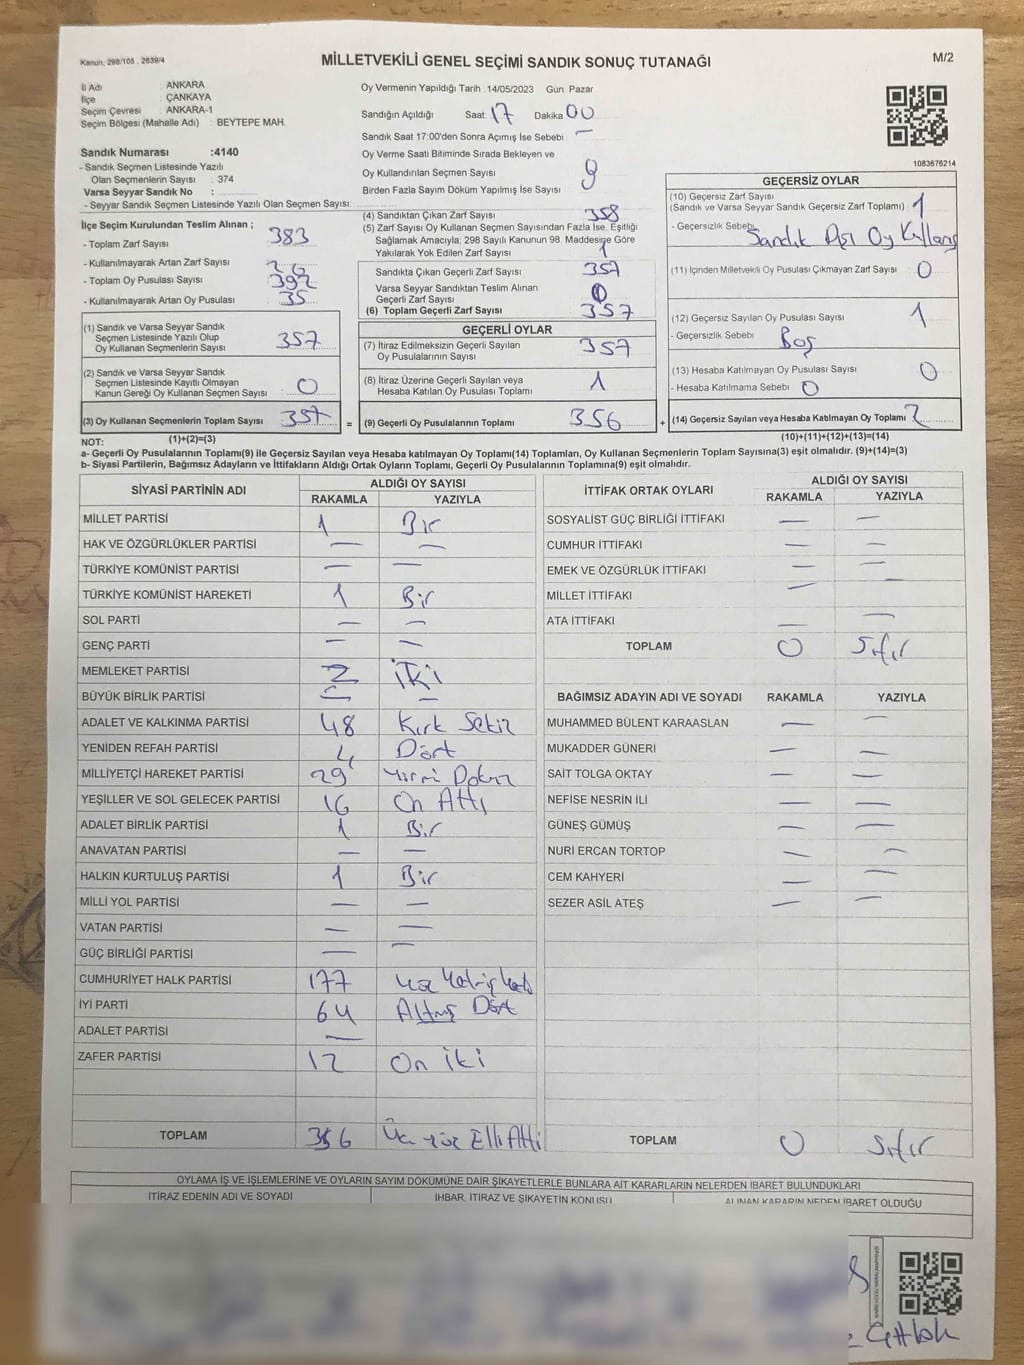 Kanun, 298/105 , 2839/4
MİLLETVEKİLİ GENEL SEÇİMİ SANDIK SONUÇ TUTANAĞI
M/2
İl Adı : ANKARA
İlçe : ÇANKAYA
Seçim Çevresi : ANKARA-1
Seçim Bölgesi (Mahalle Adı) : BEYTEPE MAH.
Sandık Numarası :4140
- Sandık Seçmen Listesinde Yazılı
Olan Seçmenlerin Sayısı : 374
Varsa Seyyar Sandık No :
- Seyyar Sandık Seçmen Listesinde Yazılı Olan Seçmen Sayısı:
Oy Vermenin Yapıldığı Tarih : 14/05/2023 Gün: Pazar
Sandığın Açıldığı Saat: 17 Dakika 00
Sandık Saat 17:00'den Sonra Açımış İse Sebebi : —
Oy Verme Saati Bitiminde Sırada Bekleyen ve
Oy Kullandırılan Seçmen Sayısı : 9
Birden Fazla Sayım Döküm Yapılmış İse Sayısı :
1083676214
İlçe Seçim Kurulundan Teslim Alınan ;
- Toplam Zarf Sayısı : 383
- Kullanılmayarak Artan Zarf Sayısı : 26
- Toplam Oy Pusulası Sayısı : 392
- Kullanılmayarak Artan Oy Pusulası : 35
(1) Sandık ve Varsa Seyyar Sandık
Seçmen Listesinde Yazılı Olup
Oy Kullanan Seçmenlerin Sayısı : 357
(2) Sandık ve Varsa Seyyar Sandık
Seçmen Listesinde Kayıtlı Olmayan
Kanun Gereği Oy Kullanan Seçmen Sayısı : 0
(3) Oy Kullanan Seçmenlerin Toplam Sayısı : 357
(4) Sandıktan Çıkan Zarf Sayısı : 358
(5) Zarf Sayısı Oy Kullanan Seçmen Sayısından Fazla İse, Eşitliği
Sağlamak Amacıyla; 298 Sayılı Kanunun 98. Maddesine Göre
Yakılarak Yok Edilen Zarf Sayısı : 1
Sandıkta Çıkan Geçerli Zarf Sayısı : 357
Varsa Seyyar Sandıktan Teslim Alınan
Geçerli Zarf Sayısı : 0
(6) Toplam Geçerli Zarf Sayısı : 357
GEÇERLİ OYLAR
(7) İtiraz Edilmeksizin Geçerli Sayılan
Oy Pusulalarının Sayısı : 357
(8) İtiraz Üzerine Geçerli Sayılan veya
Hesaba Katılan Oy Pusulası Toplamı : 1
= (9) Geçerli Oy Pusulalarının Toplamı : 356
GEÇERSİZ OYLAR
(10) Geçersiz Zarf Sayısı
(Sandık ve Varsa Seyyar Sandık Geçersiz Zarf Toplamı) : 1
- Geçersizlik Sebebi: Sandık Dışı Oy Kullanış
(11) İçinden Milletvekili Oy Pusulası Çıkmayan Zarf Sayısı : 0
(12) Geçersiz Sayılan Oy Pusulası Sayısı : 1
- Geçersizlik Sebebi : Boş
(13) Hesaba Katılmayan Oy Pusulası Sayısı : 0
- Hesaba Katılmama Sebebi : 0
+ (14) Geçersiz Sayılan veya Hesaba Katılmayan Oy Toplamı : 2
NOT: (1)+(2)=(3)
(10)+(11)+(12)+(13)=(14)
a- Geçerli Oy Pusulasının Toplamı(9) ile Geçersiz Sayılan veya Hesaba katılmayan Oy Toplamı(14) Toplamları, Oy Kullanan Seçmenlerin Toplam Sayısına(3) eşit olmalıdır. (9)+(14)=(3)
b- Siyasi Partilerin, Bağımsız Adayların ve İttifakların Aldığı Ortak Oyların Toplamı, Geçerli Oy Pusulalarının Toplamına(9) eşit olmalıdır.
SİYASİ PARTİNİN ADI ALDIĞI OY SAYISI
RAKAMLA YAZIYLA
MİLLET PARTİSİ 1 Bir
HAK VE ÖZGÜRLÜKLER PARTİSİ — —
TÜRKİYE KOMÜNİST PARTİSİ — —
TÜRKİYE KOMÜNİST HAREKETİ 1 Bir
SOL PARTİ — —
GENÇ PARTİ — —
MEMLEKET PARTİSİ 2 İki
BÜYÜK BİRLİK PARTİSİ — —
ADALET VE KALKINMA PARTİSİ 48 Kırk Sekiz
YENİDEN REFAH PARTİSİ 4 Dört
MİLLİYETÇİ HAREKET PARTİSİ 29 Yirmi Dokuz
YEŞİLLER VE SOL GELECEK PARTİSİ 16 On Altı
ADALET BİRLİK PARTİSİ 1 Bir
ANAVATAN PARTİSİ — —
HALKIN KURTULUŞ PARTİSİ 1 Bir
MİLLİ YOL PARTİSİ — —
VATAN PARTİSİ — —
GÜÇ BİRLİĞİ PARTİSİ — —
CUMHURİYET HALK PARTİSİ 177 Yüz Yetmiş Yedi
İYİ PARTİ 64 Altmış Dört
ADALET PARTİSİ —
ZAFER PARTİSİ 12 On İki
TOPLAM 356 Üç yüz Elli Altı
İTTİFAK ORTAK OYLARI ALDIĞI OY SAYISI
RAKAMLA YAZIYLA
SOSYALİST GÜÇ BİRLİĞİ İTTİFAKI — —
CUMHUR İTTİFAKI — —
EMEK VE ÖZGÜRLÜK İTTİFAKI — —
MİLLET İTTİFAKI — —
ATA İTTİFAKI — —
TOPLAM 0 Sıfır
BAĞIMSIZ ADAYIN ADI VE SOYADI RAKAMLA YAZIYLA
MUHAMMED BÜLENT KARAASLAN — —
MUKADDER GÜNERİ — —
SAİT TOLGA OKTAY — —
NEFİSE NESRİN İLİ — —
GÜNEŞ GÜMÜŞ — —
NURİ ERCAN TORTOP — —
CEM KAHYERİ — —
SEZER ASİL ATEŞ — —
TOPLAM 0 Sıfır
OYLAMA İŞ VE İŞLEMLERİNE VE OYLARIN SAYIM DÖKÜMÜNE DAİR ŞİKAYETLERLE BUNLARA AİT KARARLARIN NELERDEN İBARET BULUNDUKLARI
İTİRAZ EDENİN ADI VE SOYADI İHBAR, İTİRAZ VE ŞİKAYETİN KONUSU ALINAN KARARIN NEDEN İBARET OLDUĞU